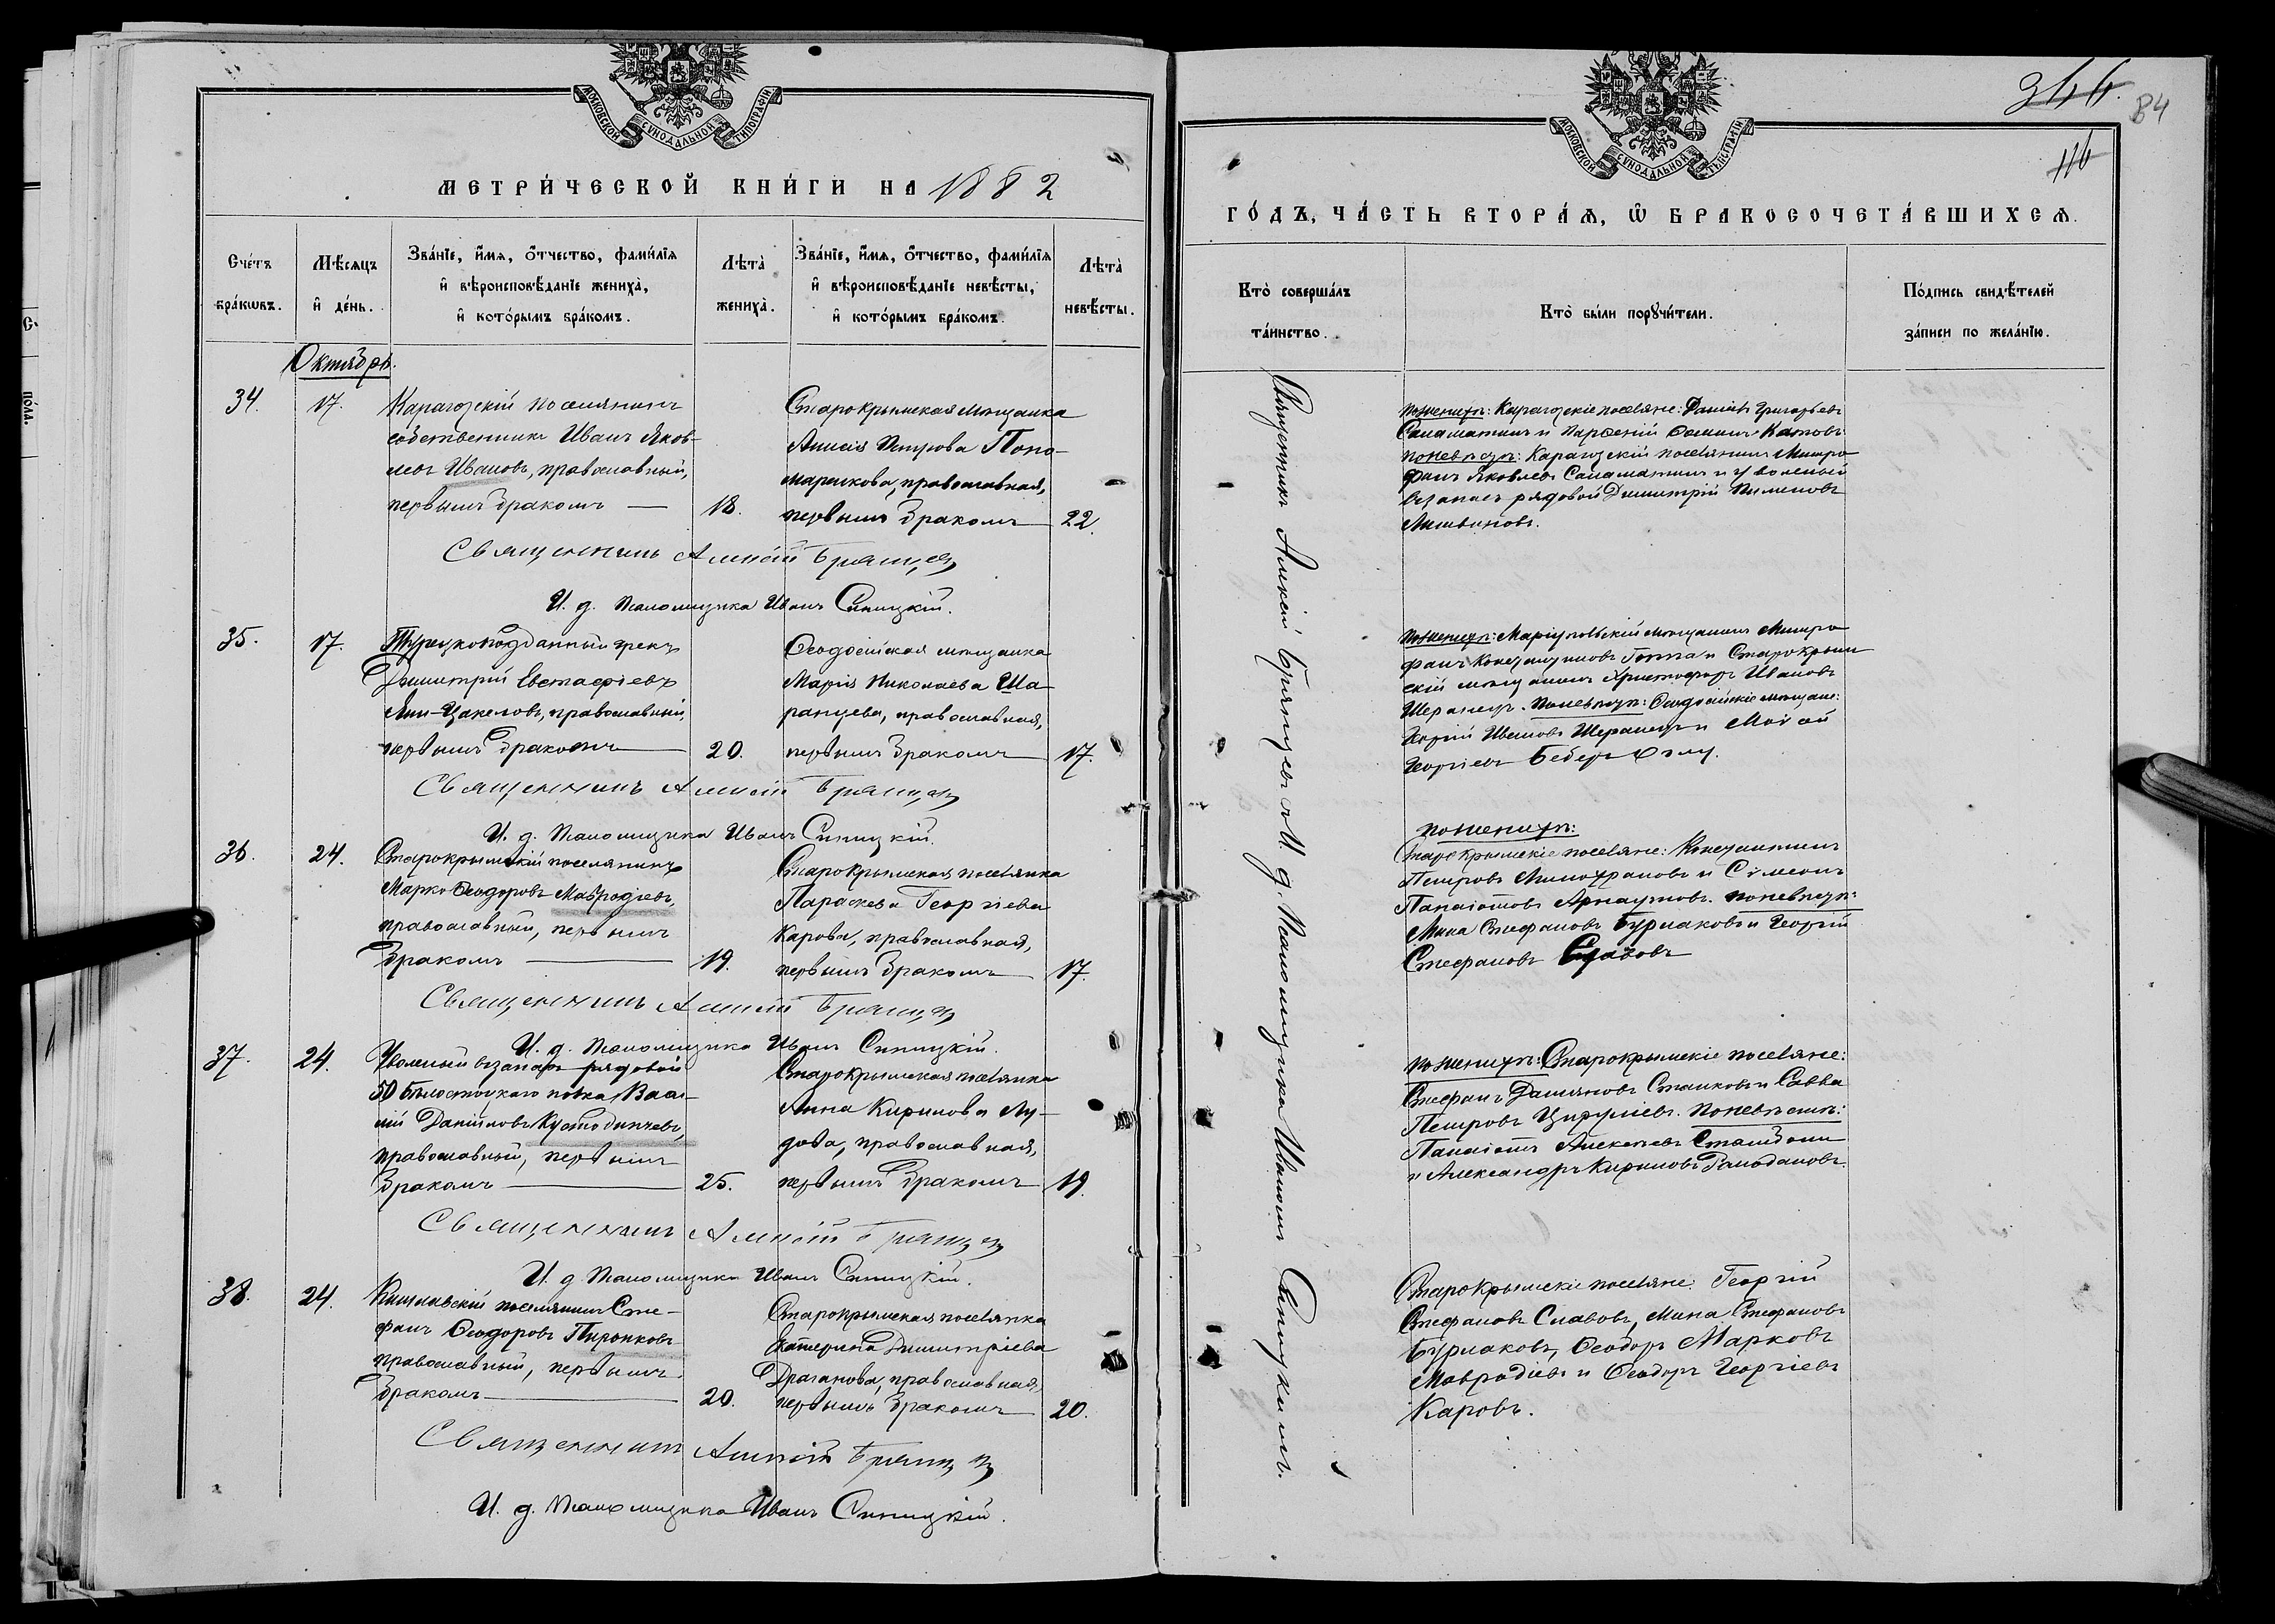 МОСКОВСКОЙ СѴНОДАЛЬНОЙ ТИПОГРАФІИ
МЕТРИ́ЧЕСКОЙ КНИ́ГИ НА 1882
Сче́тъ
бра́кѡвъ.
Мѣ́сяцъ
и҆ де́нь.
Зва́нїе, и҆́мѧ, ѻ҆́тчество, фами́лїѧ
и҆ вѣроисповѣ́данїе жениха̀,
и҆ кото́рымъ бра́комъ.
Лѣта̀
жениха̀.
Зва́нїе, и҆́мѧ, ѻ҆́тчество, фами́лїѧ
и҆ вѣроисповѣ́данїе невѣ́сты,
и҆ кото́рымъ бра́комъ.
Лѣта̀
невѣ́сты.
Октябрь.
34.
17.
Карагозскій поселянинъ
собственникъ Иванъ Яков-
левъ Ивановъ, православный,
первымъ бракомъ —
18.
Старокрымская мѣщанка
Петрова Поно-
марenкова, православная,
первымъ бракомъ —
22.
Священникъ Алексій Брянцевъ
И. д. Псаломщика Иванъ Синицкій.
35.
17.
Турецкоподданный грекъ
Димитрій Евстафіевъ
Яни-Цакеловъ, православный,
первымъ бракомъ —
20.
Ѳеодосійская мѣщанка
Марія Николаева Ша-
ранцева, православная,
первымъ бракомъ —
17.
Священникъ Алексій Брянцевъ
И. д. Псаломщика Иванъ Синицкій.
36.
24.
Старокрымскій поселянинъ
Марко Ѳеодоровъ Мавродіевъ,
православный, первымъ
бракомъ —
19.
Старокрымская поселянка
Параскева Георгіева
Карова, православная,
первымъ бракомъ —
17.
Священникъ Алексій Брянцевъ
И. д. Псаломщика Иванъ Синицкій.
37.
24.
Уволенный въ запасъ рядовой
50 Бѣлостокскаго полка Васи-
лій Даніиловъ Кустодинчевъ,
православный, первымъ
бракомъ —
25.
Старокрымская поселянка
Анна Кирилова Лу-
дова, православная,
первымъ бракомъ —
19.
Священникъ Алексій Брянцевъ
И. д. Псаломщика Иванъ Синицкій.
38.
24.
Кишлавскій поселянинъ Сте-
фанъ Ѳеодоровъ Пиронковъ
православный, первымъ
бракомъ —
20.
Старокрымская поселянка
Екатерина Димитріева
Драганова, православная,
первымъ бракомъ —
20.
Священникъ Алексій Брянцевъ
И. д. Псаломщика Иванъ Синицкій.
346.
84
116
МОСКОВСКОЙ СѴНОДАЛЬНОЙ ТИПОГРАФІИ
ГО́ДЪ, ЧА́СТЬ ВТОРА́Ѧ, Ѽ БРАКОСОЧЕТА́ВШИХСѦ.
Кто̀ соверша́лъ
та́инство.
Кто̀ бы́ли порꙋчи́тели.
По́дпись свидѣ́телей
за́писи по жела́нїю.
Священникъ Алексій Брянцевъ съ И. д. Псаломщика Иваномъ Синицкимъ.
по женихѣ: Карагозскіе поселяне: Даніилъ Григорьевъ
Саламатинъ и Парѳеній Ѳоминъ Катовъ
по невѣстѣ: Карагозскій поселянинъ Митро-
фанъ Яковлевъ Саламатинъ и уволеный
въ запасъ рядовой Димитрій Пименовъ
Литвиновъ.
по женихѣ: Маріупольскій мѣщанинъ Митро-
фанъ Константиновъ Гоппа и Старокрым-
скій мѣщанинъ Христофоръ Ивановъ
Шеранецъ. по невѣстѣ: Ѳеодосійскіе мѣщане:
Ивановъ Шеранецъ и Моісей
Георгіевъ
по женихѣ:
Старокрымскіе поселяне: Константинъ
Петровъ и Сѵмеонъ
Панаіотовъ Арнаутовъ. по невѣстѣ:
Мина Стефановъ Бурлаковъ и Георгій
Стефановъ Славовъ
по женихѣ: Старокрымскіе поселяне:
Стефанъ Даміановъ Станковъ и Савва
Петровъ Цируліевъ. по невѣстѣ:
Панаіотъ Алексѣевъ
и Александръ Кириловъ Рамодановъ.
Старокрымскіе поселяне: Георгій
Стефановъ Славовъ, Мина Стефановъ
Бурлаковъ, Ѳеодоръ Марковъ
Мавродіевъ и Ѳеодоръ Георгіевъ
Каровъ.